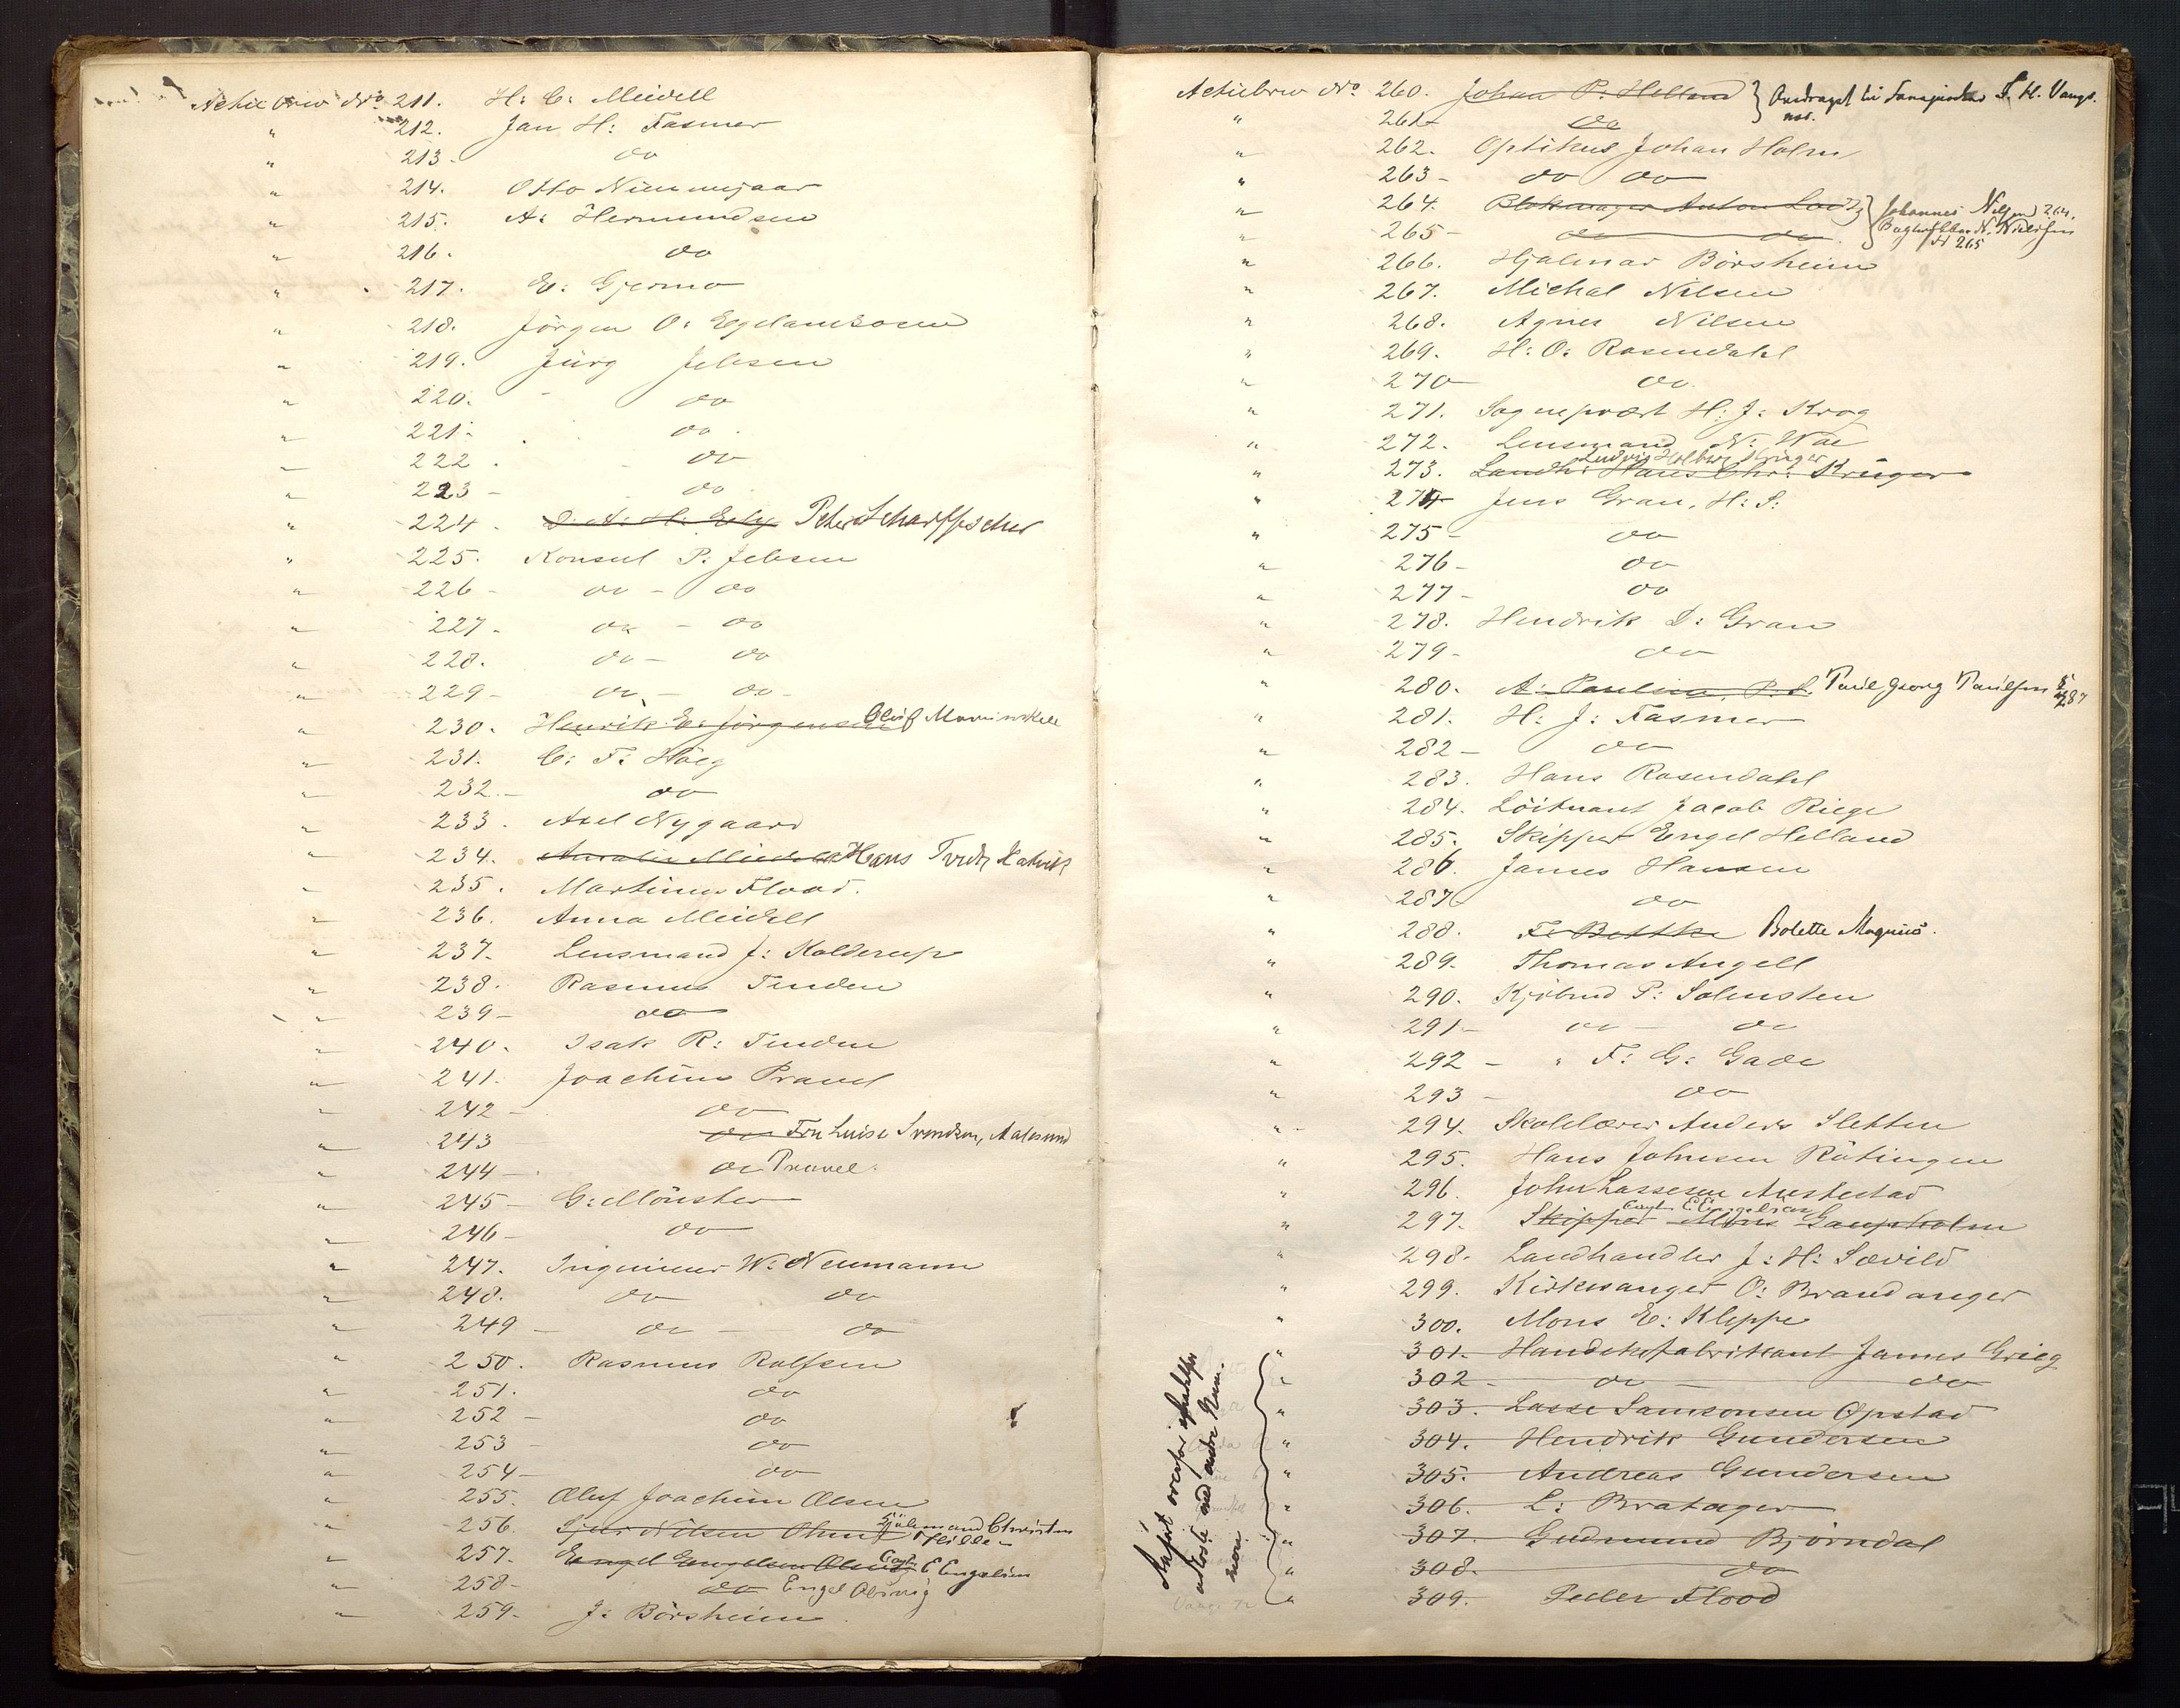 Actiebrev No. 211. H: C: Meidell
" 212. Jan H: Fasmer
" 213- do
" 214. Otto Nimmgaar
" 215. A: Hermundsen
" 216. do
" 217. E: Gjermo
" 218. Jörgen O: Egelandsosen
" 219. Jürg Jebsen
" 220. do
" 221- do
" 222. do
" 223- do
" 224. D. A. H. Eeg Peter Scharffscher
" 225. Konsul P: Jebsen
" 226- do - do
" 227. do - do
" 228. do - do
" 229- do - do-
" 230. Henrik E: Jörgensen Oluf
" 231. C: F: Höeg
" 232.- do
" 233. Axel Nygaard
" 234. Amalie Meidell Hans Hatvik
" 235. Martinus Flood.
" 236. Anna Meidell
" 237. Lensmand J: Kolderup
" 238. Rasmus Tenden
" 239- do
" 240. Isak R: Tenden
" 241. Joachim Pravel
" 242- do
" 243 do Fru Luise Svendsen, Aalesund
" 244- do Pravel.
" 245- G: Mönster
" 246- do
" 247. Ingenieur W: Neumann
" 248. do do
" 249- do - do
" 250. Rasmus Rolfsen
" 251. do
" 252- do
" 253- do
" 254- do
" 255. Oluf Joachim Olsen
" 256. Sjur Nilsen Christen Hille
" 257. Engel Engelsen E Engelsen
" 258- do Engel
" 259- J: Börsheim
Actiebrev No. 260. Johan P. Helland } S. H. Vangs-
nes.
" 261- do
" 262. Optikus Johan Holm
" 263- do do
" 264. Blokmager Anton } Johannes Nilsen 264.
" 265- do do. N. Nielsen 265
" 266. Hjalmar Börsheim
" 267. Michal Nilsen
" 268. Agnes Nilsen
" 269. H: O: Rosendahl
" 270- do
" 271. Sognepræst H: J: Krog
" 272. Lensmand N: Wäe
Ludvig Holberg Krüger
" 273. Landh: Hans Chr: Krüger
" 274- Jens Gran, H: S:
" 275- do
" 276- do
" 277- do
" 278. Hendrik D: Gran
" 279- do
" 280. A: Paulsen, P. S. Paul Georg Paulsen
" 281. H: J: Fasmer
" 282- do
" 283. Hans Rosendahl
" 284. Löitnant Jacob Riege
" 285. Skipper Engel Helland
" 286. James Hansen
" 287 do
" 288. F: Bettke Bolette Magnus.
" 289. Thomas Angell
" 290. Kjöbmd P: Solensten
" 291- do - do
" 292- " F: G: Gade
" 293- do
" 294. Skolelærer Anders Sletten
" 295. Hans Johnsen Rötingen
" 296. John Lassesen Austestad
Capt. E Engelsen
" 297. Skipper Mons Gaupholm
" 298. Landhandler J: H: Sævild
" 299. Kirkesanger O: Brandanger
" 300. Mons E: Kleppe
" 301. Handskefabrikant James Grieg
" 302- do - do
" 303. Lasse Samsonsen Opstad
" 304. Hendrik Gundersen
" 305. Andreas Gundersen
" 306. L: Bratager
" 307. Gudmund Björndal
" 308. do
" 309. Peder Flood
Anført ovenfor
med andre Num-